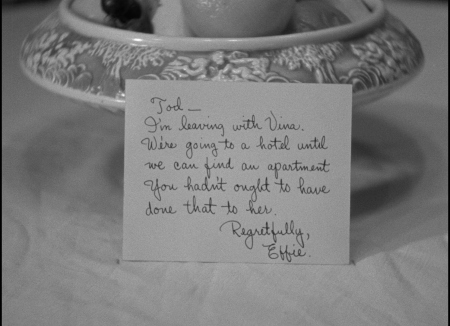 Tod—
I'm leaving with Vina.
We're going to a hotel until
we can find an apartment
You hadn't ought to have
done that to her.
Regretfully,
Effie.